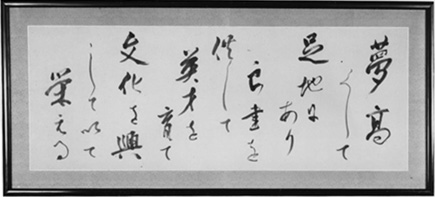 夢高
くして
足地に
あり
良書を
供して
英才を
育て
文化を興
して以て
栄える